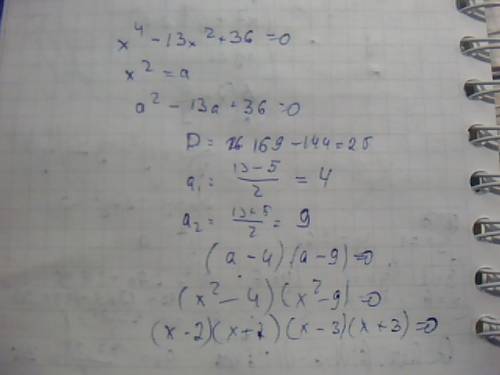 x⁴ - 13x² + 36 = 0
x² = a
a² - 13a + 36 = 0
D = 169 - 144 = 25
a₁ = (13 - 5)/2 = 4
a₂ = (13 + 5)/2 = 9
(a - 4)(a - 9) = 0
(x² - 4)(x² - 9) = 0
(x - 2)(x + 2)(x - 3)(x + 3) = 0